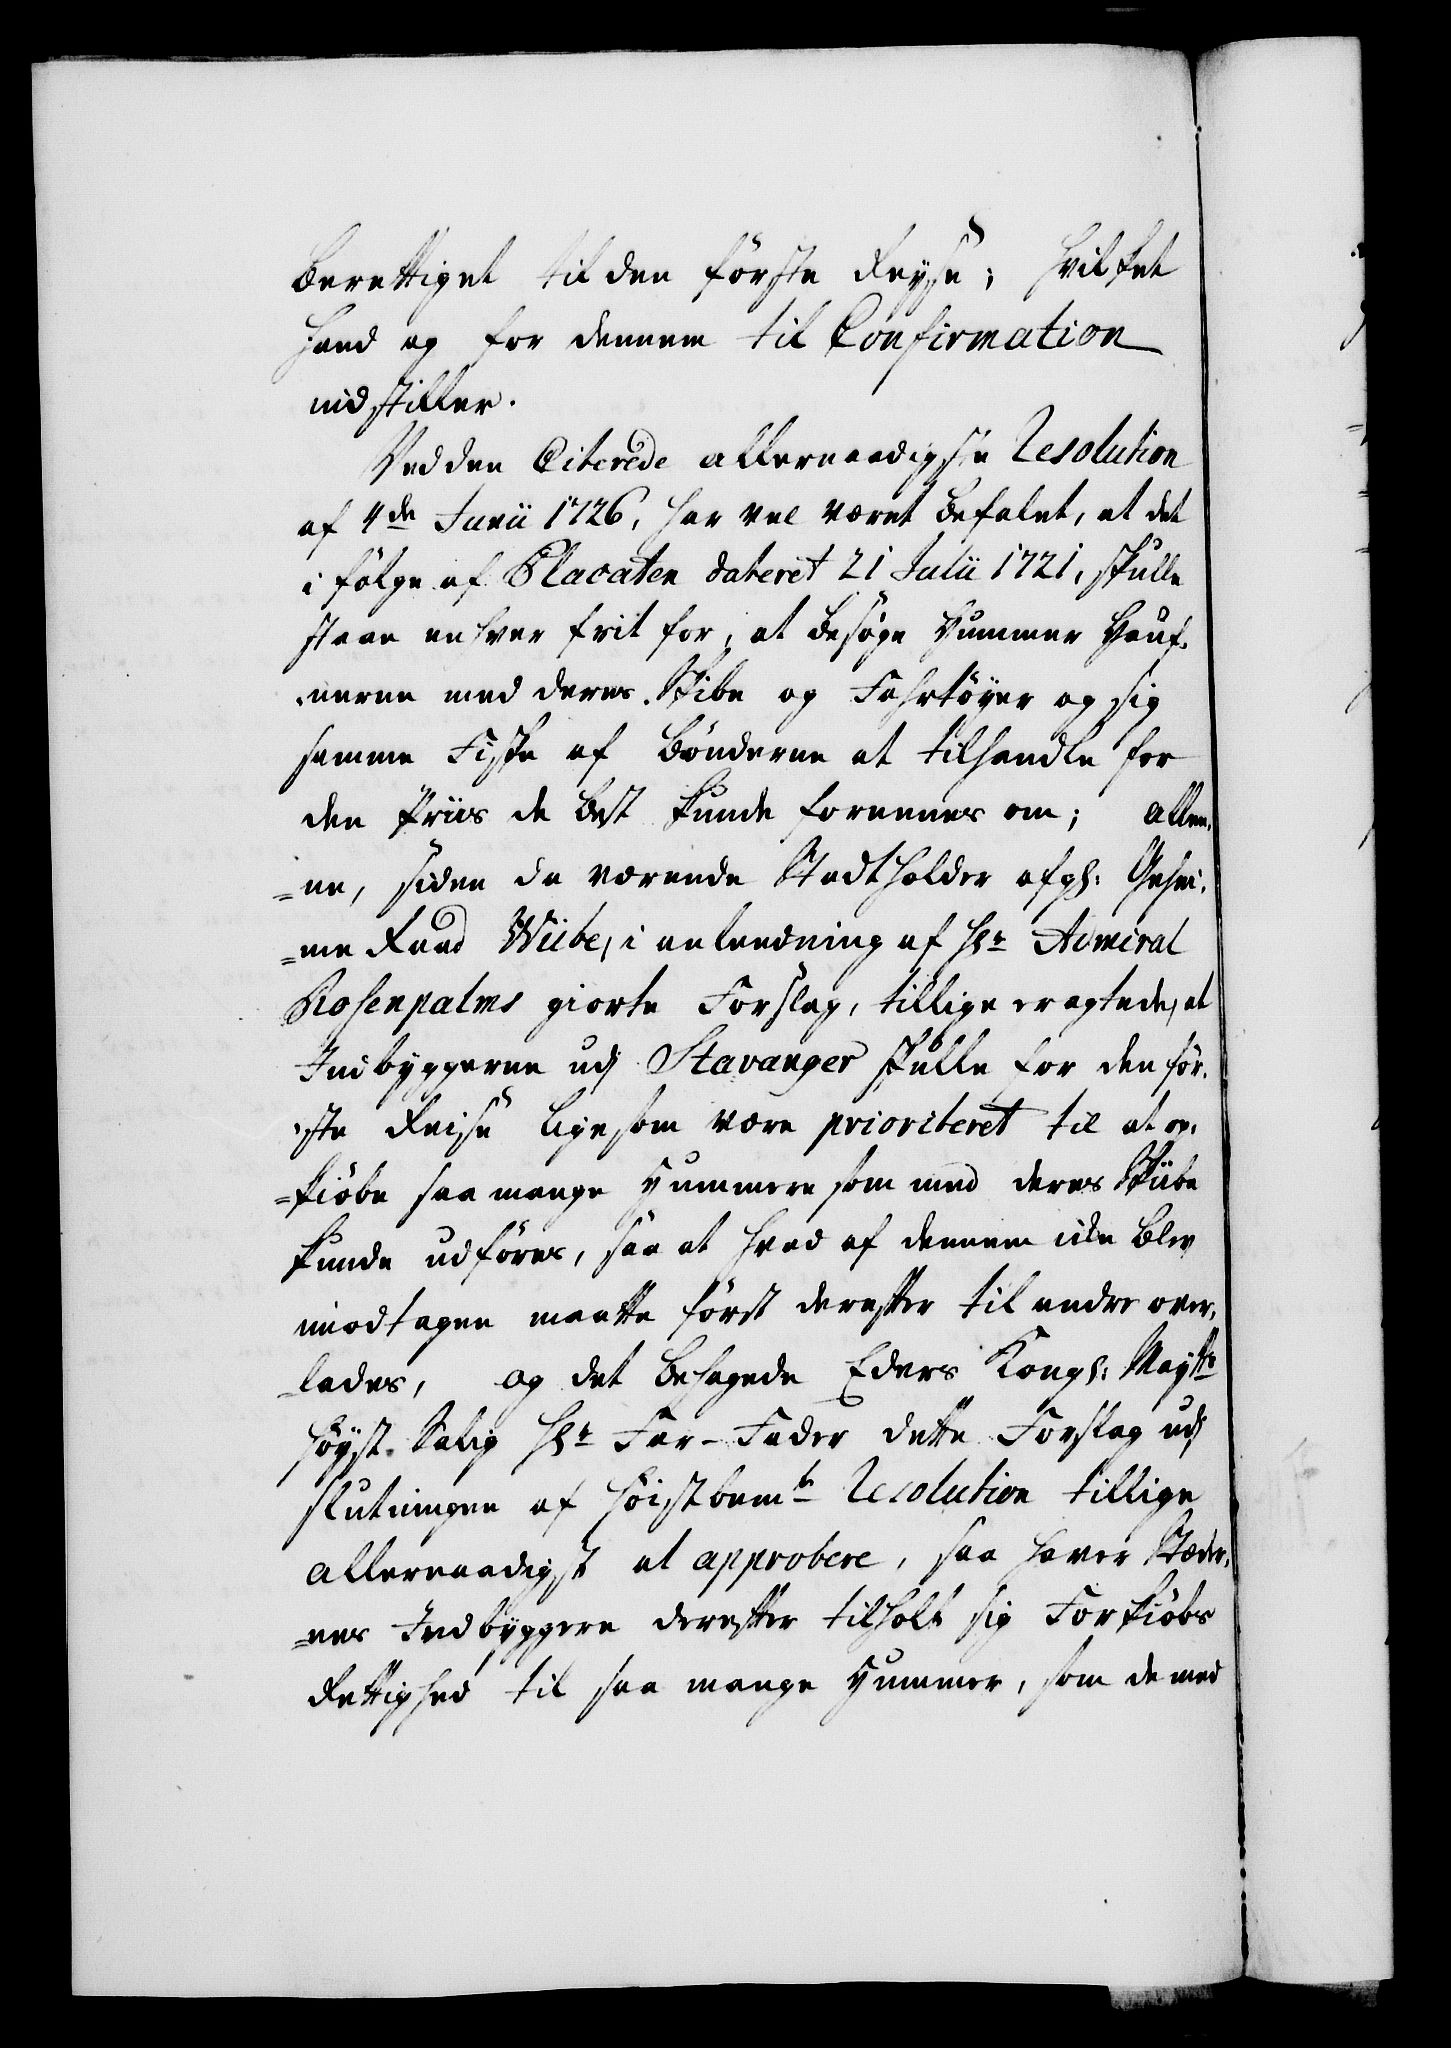 berettiget til den förste Reyse; hvilket
hand og for dennem til Confirmation
indstiller.
Ved den Citerede allernaadigste Resolution
af 4de Junii 1726, har vel været befalet, at det
i følge af Placaten dateret 21 Julii 1721, skulle
staae enhver frit for, at besöge Hummer Hauf-
nerne med deres Skibe og Fahrtöyer og sig
samme Fiske af Bönderne at tilhandle for
den Priis de best kunde forennes om; allee-
=ne, siden da værende Stadtholder afgl: Gehei-
=me Raad Wiibe, i anleedning af Hr Admiral
Rosenpalms giorte Forslag, tillige eragtede, at
Indbyggerne udj Stavanger skulle for den för-
ste Reise ligesom være prioriteret til at op-
=kiöbe saa mange Hummere som med deres Skiibe
kunde udföres, saa at hvad af dennem iche blev
imodtagen maatte först derefter til andre over-
lades, og det behagede Eders Kongl: Maytts
höyst Salig Hr Far-Fader dette Forslag udj
slutningen af höistbemte Resolution tillige
allernaadigst at approbere, saa haver Stæder-
=nes Indbyggere derefter tilholt sig Forkiöbs
Rettighed til saa mange Hummer, som de med